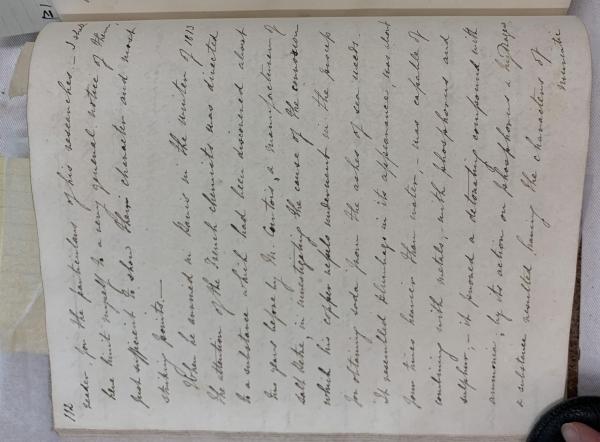 112
reader for the particulars of his researches, – I shall
here limit myself to a very general notice of them,
just sufficient to show their character and most
striking points. –
When he arrived in Paris in the winter of 1813
the attention of the French chemists was directed
to a substance which had been discovered about
two years before by M. Courtois a manufacturer of
saltpetre in investigating the cause of the corrosion
which his copper vessels underwent in the process
for obtaining soda from the ashes of sea weeds.
It resembled plumbago in its appearance, was about
four times heavier than water, – was capable of
combining with metals, – with phosphorus and
sulphur, – it formed a detonating compound with
ammonia, by its action on phosphorus &
a substance resulted having the characters of
muriatic